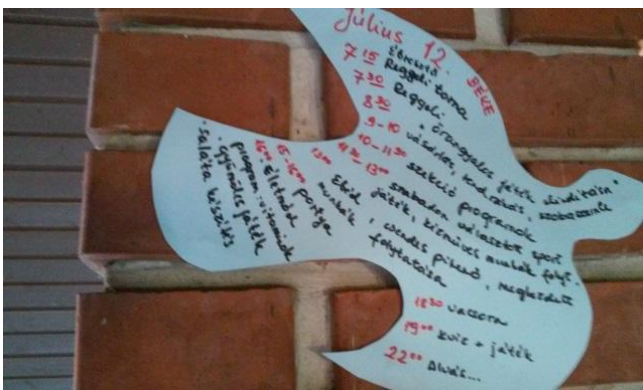 Július 12 BÉKE
7 15 Ébresztő.
Reggeli torna
7 30 Reggeli
8 30 • őrangyalos játék elindítása
9-10 vásárlás, rendrakás, szobaszemle
10-11 30 szekció programok
11 30 - 13 00 szabadon választott sport
játék, kézműves munkák folyt.
13 00 Ebéd, csendes pihenő, megkezdett
munkák folytatása
15-16 00 portya
16 00 • Életmód
program: vitaminok
• gyümölcs játék
• saláta készítés
18 30 vacsora
19 00 kvíz + játék
22 00 Alvás...